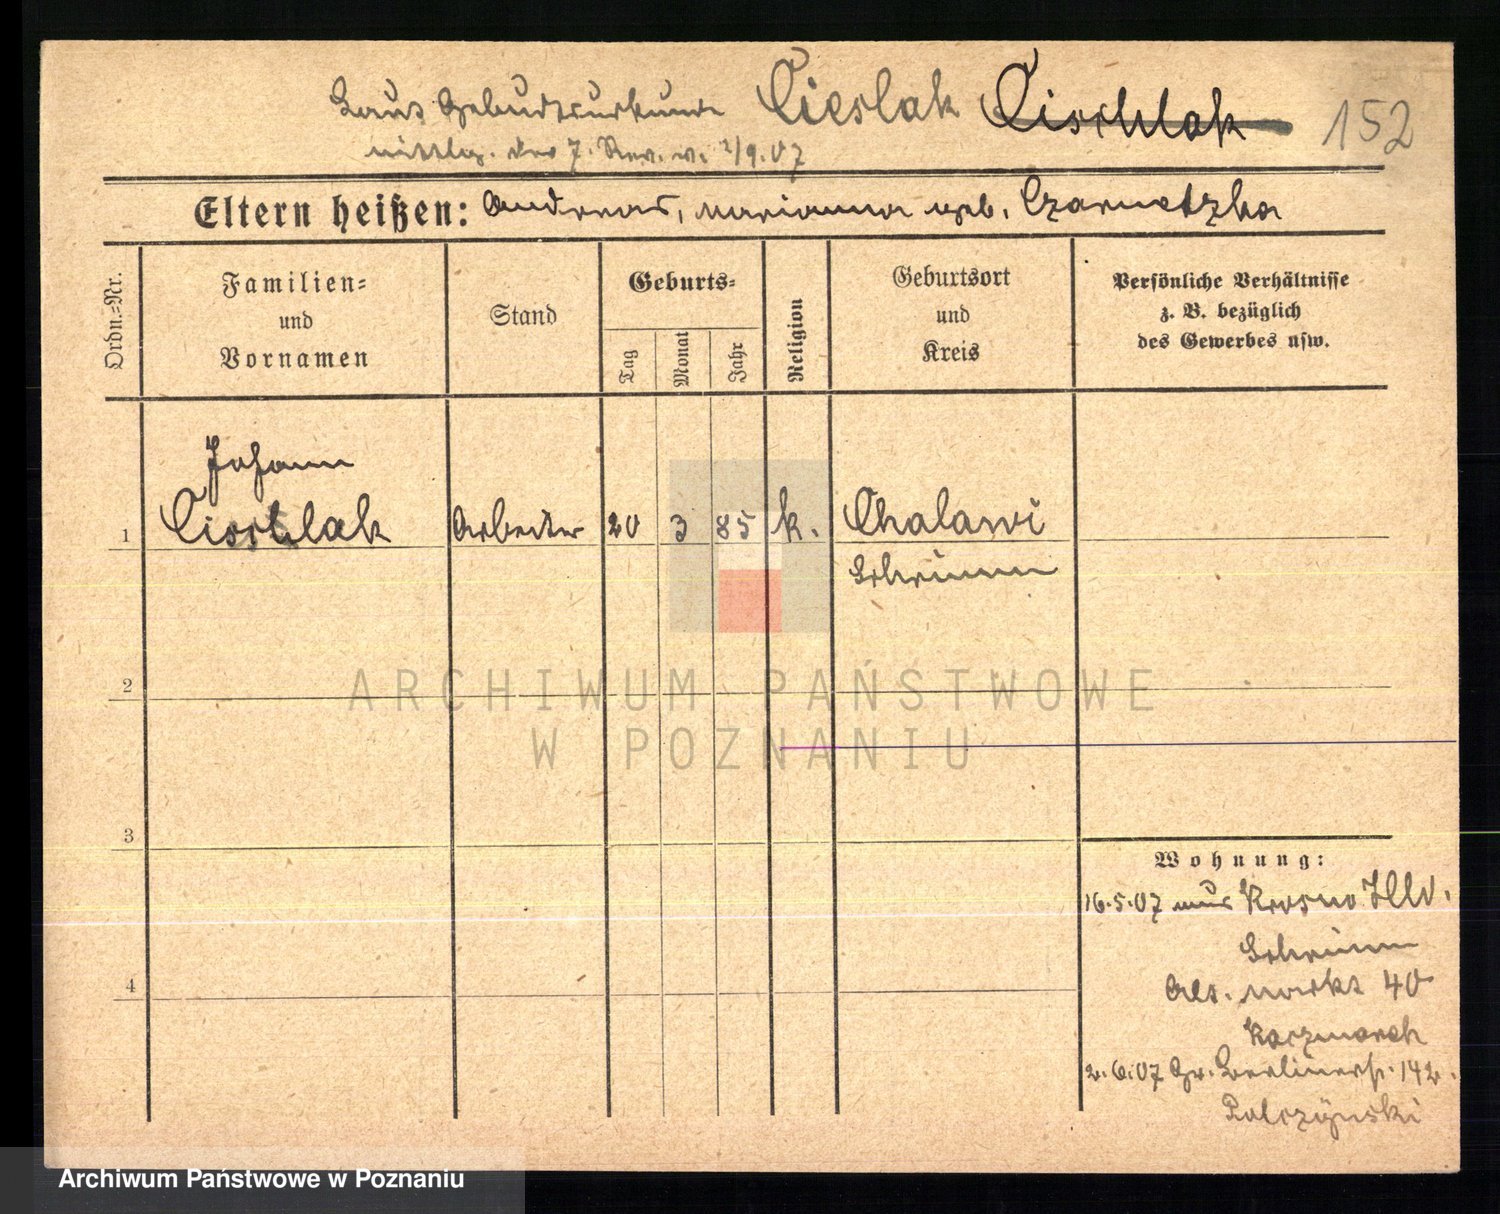 Laut Geburtsurkunde Cieslak Cischlak 152
mittlg. des 7. Rev. v. 2/9.07
Eltern heißen: Andreas, Marianna geb. Czarnetzka
Ordn.=Nr.
Familien=
und
Vornamen
Stand
Geburts=
Tag
Monat
Jahr
Religion
Geburtsort
und
Kreis
Persönliche Verhältnisse
z. B. bezüglich
des Gewerbes usw.
Johann
1 Cischlak Arbeiter 20 3 85 k. Chalawi
Schrimm
2
ARCHIWUM PAŃSTWOWE
W POZNANIU
3
Wohnung:
16.5.07 aus Krosno
Schrimm
4
Alt. Markt 40
Kaczmarek
2.6.07 Gr. Berlinerstr. 142.
Palczynski
Archiwum Państwowe w Poznaniu